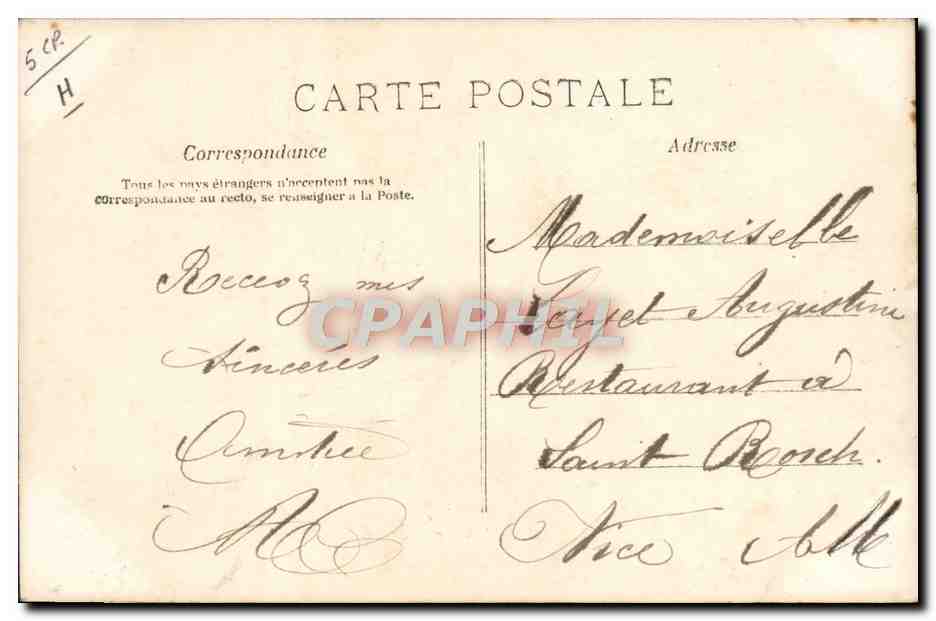 5 CP.
H
CARTE POSTALE
Correspondance
Tous les pays étrangers n'acceptent pas la
correspondance au recto, se renseigner a la Poste.
Recevoz mes
sincères
Amitiée
Adresse
Mademoiselle
Augustine
Restaurant à
Saint Rosch.
Nice AM
CPAPHIL